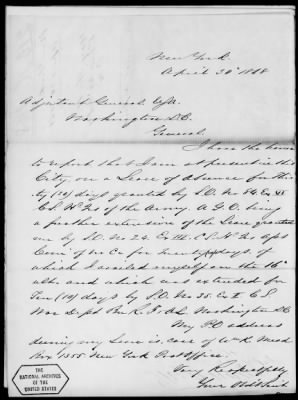 New York
April 20" 1868
Adjutant General U.S.A.
Washington D.C.
General.
I have the honor
to report that I am at present in this
City on a Leave of absence for
days granted by S.O. No 84
of the Army. A.G.O. being
a further extension of the Leave granted
me by S.O. No 24.
days, of
which I availed myself on the 16"
ulto. and which was extended for
Ten (10) days by S.O. No 35.
War Dept Washington D.C.
My P.O. address
during my leave is, care of Wm Mead
Box 1355 New York Post Office.
Very Respectfully
Your Obdt Servt
THE NATIONAL ARCHIVES
OF THE
UNITED STATES